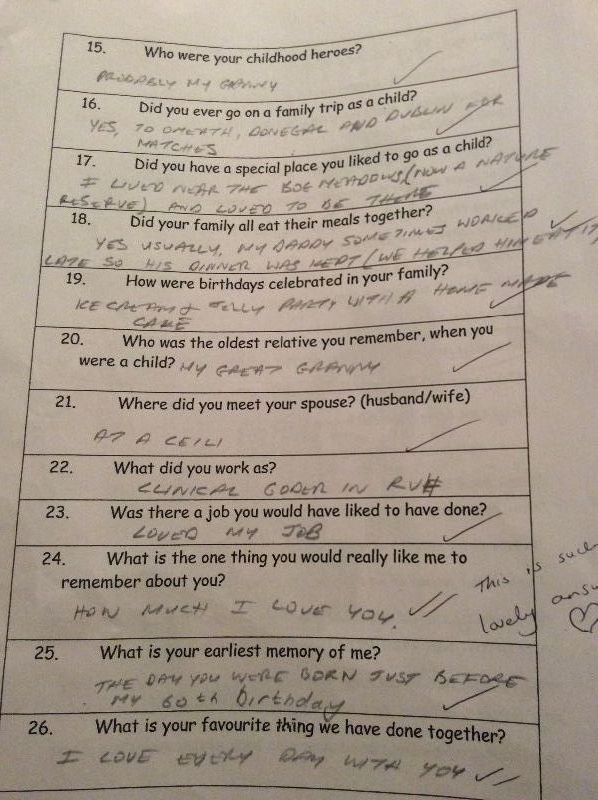 15. Who were your childhood heroes?
PROBABLY MY GRANNY
16. Did you ever go on a family trip as a child?
YES, TO OMEATH, DONEGAL AND DUBLIN FOR
MATCHES
17. Did you have a special place you liked to go as a child?
I LIVED NEAR THE BOG MEADOWS (NOW A NATURE
RESERVE) AND LOVED TO BE THERE
18. Did your family all eat their meals together?
YES USUALLY, MY DADDY SOMETIMES WORKED
LATE SO HIS DINNER WAS KEPT (WE HELPED HIM EAT IT)
19. How were birthdays celebrated in your family?
ICE CREAM & JELLY PARTY WITH A HOME MADE
CAKE
20. Who was the oldest relative you remember, when you
were a child? MY GREAT GRANNY
21. Where did you meet your spouse? (husband/wife)
AT A CEILI
22. What did you work as?
CLINICAL CODER IN RVH
23. Was there a job you would have liked to have done?
LOVED MY JOB
24. What is the one thing you would really like me to
remember about you?
HOW MUCH I LOVE YOU.
This is such
lovely
25. What is your earliest memory of me?
THE DAY YOU WERE BORN JUST BEFORE
MY 60th Birthday
26. What is your favourite thing we have done together?
I LOVE EVERY DAY WITH YOU